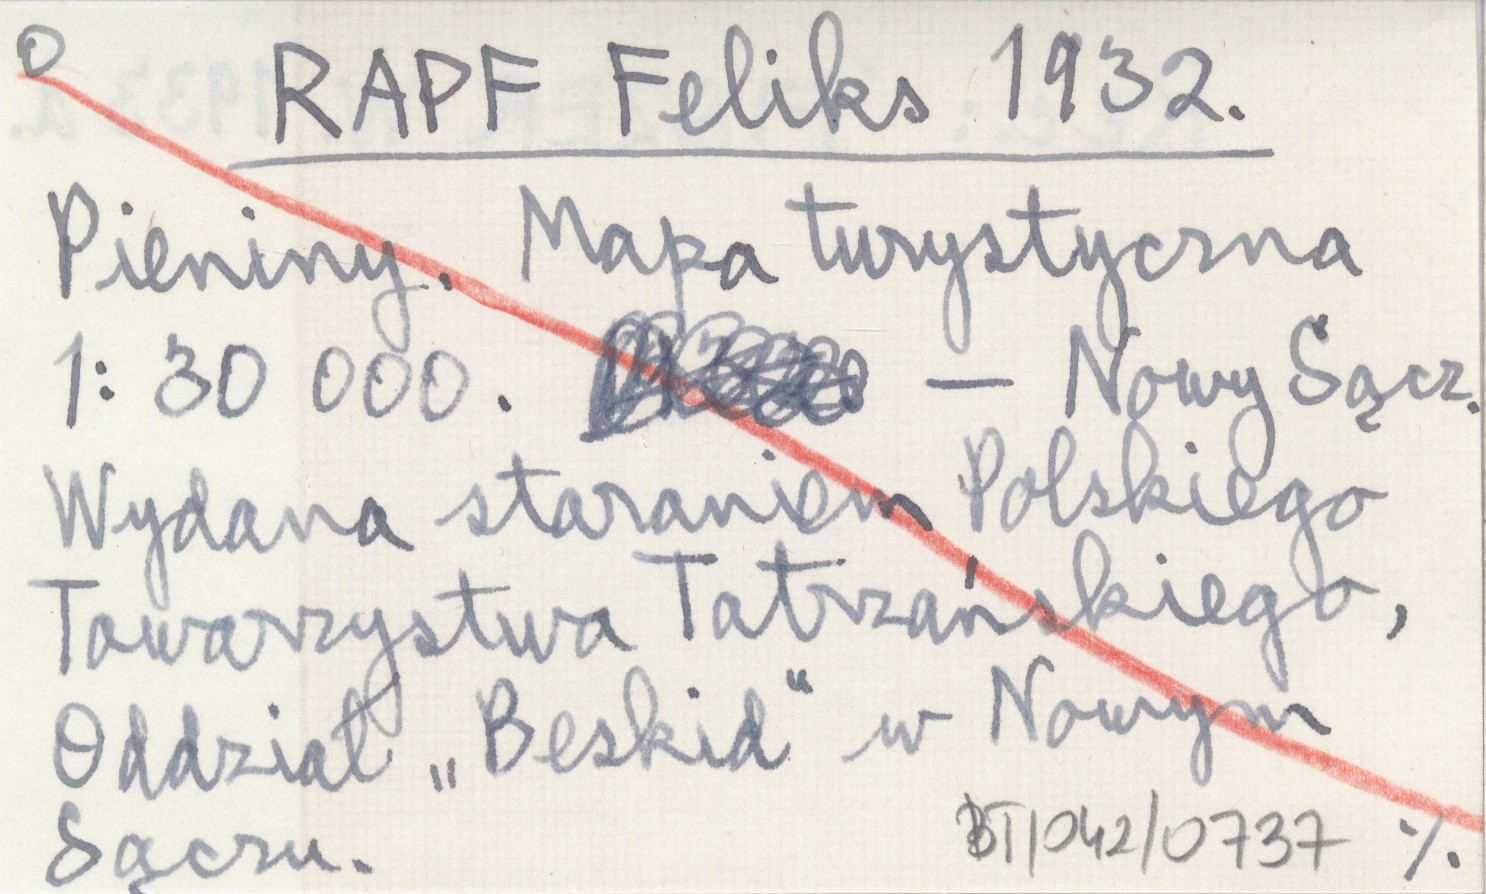 O
RAPF Feliks 1932.
Pieniny. Mapa turystyczna
1:30 000. — Nowy Sącz.
Wydana staraniem Polskiego
Towarzystwa Tatrzańskiego,
Oddział „Beskid" w Nowym
Sączu.
BT/042/0737 ./.